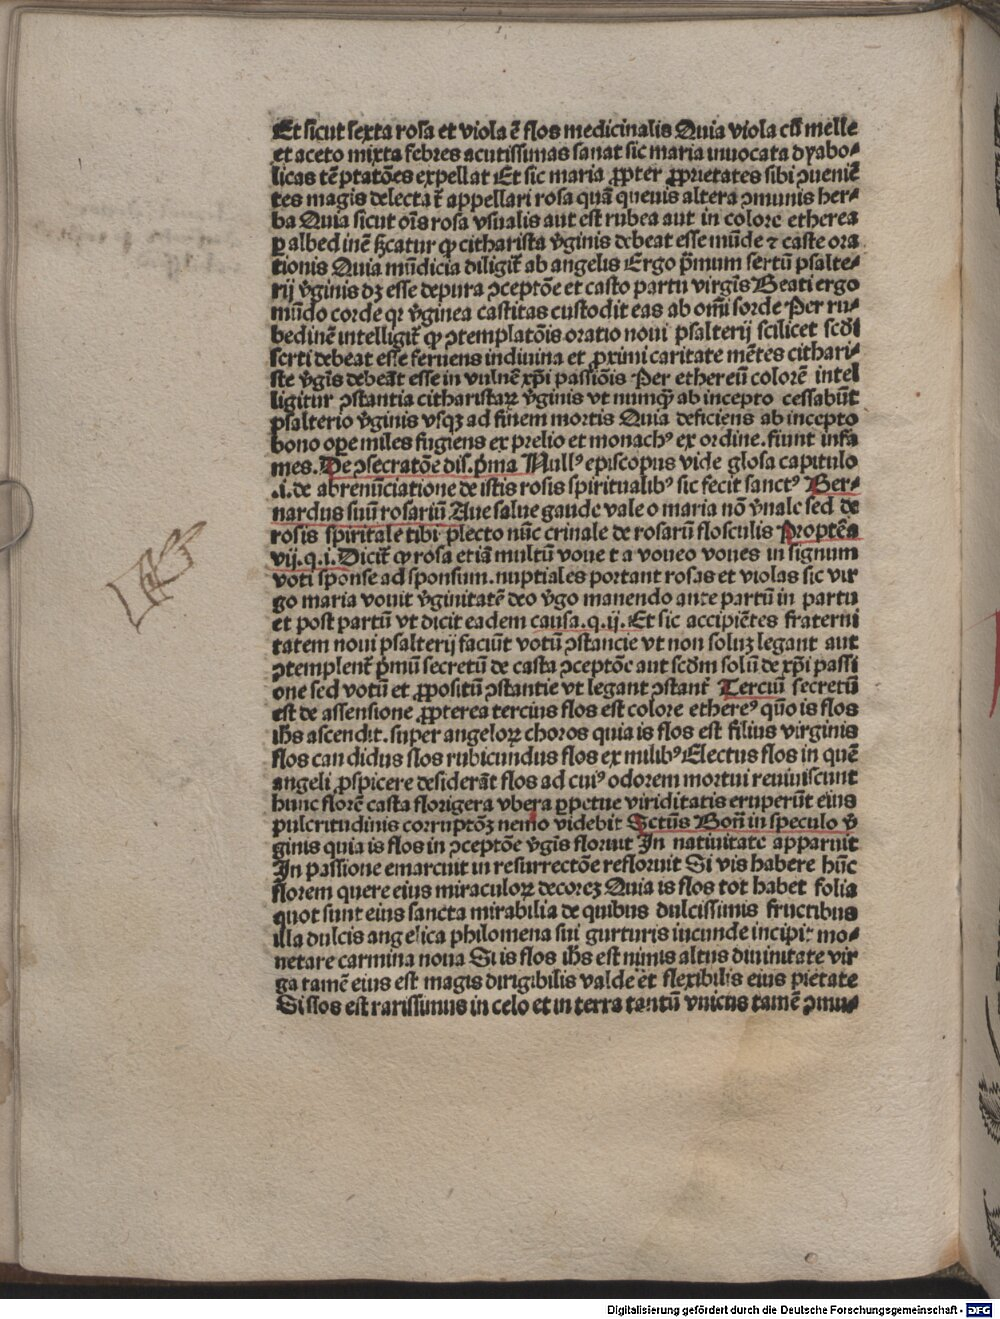 Et sicut sexta rosa et viola ē flos medicinalis Quia viola cū melle
et aceto mixta febres acutissimas sanat sic maria inuocata dyabo-
licas tēptatōes expellat Et sic maria ꝓpter ꝓprietates sibi ꝯueniē
tes magis delectat̄ appellari rosa quā queuis altera ꝯmunis her-
ba Quia sicut oīs rosa vsualis aut est rubea aut in colore etherea
ꝑ albedinē
citharista v̄ginis debeat esse mūde ⁊ caste ora
tionis Quia mūdicia diligit̄ ab angelis Ergo p̄mum sertū psalte-
rij v̄ginis dꝫ esse depura ꝯceptōe et casto partu virgīs Beati ergo
mūdo corde qꝛ v̄ginea castitas custodit eas ab om̄i sorde Per ru-
bedinē intelligit̄ ꝙ ꝯtemplatōis oratio noui psalterij scilicet scd̄i
serti debeat esse feruens indiuina et ꝓximi caritate mētes cithari-
ste v̄gīs debeāt esse in vulnē xp̄i passiōis Per ethereū colorē intel
ligitur ꝯstantia citharistaꝝ v̄ginis vt nunqꝫ̄ ab incepto cessabūt
psalterio v̄ginis vsqꝫ ad finem mortis Quia deficiens ab incepto
bono oꝑe miles fugiens ex prelio et monachꝰ ex ordine. fiunt infa
mes. De ꝯsecratōe dis. p̄ma Nullꝰ episcopus vide glosa capitulo
.i. de abrenūciatione de istis rosis spiritualibꝰ sic fecit sanctꝰ Ber-
nardus suū rosariū Aue salue gaude vale o maria nō v̄nale sed de
rosis spiritale tibi plecto nūc crinale de rosarū flosculis Proptēa
vij. q. i. Dicit̄ ꝙ rosa etiā multū voue t a voueo voues in signum
voti sponse ad sponsum. nuptiales portant rosas et violas sic vir
go maria vouit v̄ginitatē deo v̄go manendo ante partū in partu
et post partū vt dicit eadem causa. q. ij. Et sic accipiētes fraterni
tatem noui psalterij faciūt votū ꝯstancie vt non soluꝫ legant aut
ꝯtemplent̄ p̄mū secretū de casta ꝯceptōe aut scd̄m solū de xp̄i passi
one sed votū et ꝓpositū ꝯstantie vt legant ꝯstant̄ Terciū secretū
est de assensione ꝓpterea tercius flos est colore ethereꝰ quō is flos
ihs ascendit. super angeloꝝ choros quia is flos est filius virginis
flos candidus flos rubicundus flos ex milibꝰ Electus flos in quē
angeli ꝓspicere desiderāt flos ad cuiꝰ odorem mortui reuiuiscunt
hunc florē casta florigera vbera ꝑpetue viriditatis eruperūt eius
pulcritudinis corruptōꝫ nemo videbit Sctūs Boñ in speculo v̄
ginis quia is flos in ꝯceptōe v̄gis floruit In natiuitate apparuit
In passione emarcuit in resurrectōe refloruit Si vis habere hūc
florem quere eius miraculoꝝ decoreꝫ Quia is flos tot habet folia
quot sunt eius sancta mirabilia de quibus dulcissimis fructibus
illa dulcis angelica philomena sui gurturis iucunde incipit mo-
netare carmina noua Si is flos ihs est nimis altus diuinitate vir
ga tamē eius est magis dirigibilis valde et flexibilis eius pietate
Si flos est rarissimus in celo et in terra tantū vnicus tamē ꝯmu-
Digitalisierung gefördert durch die Deutsche Forschungsgemeinschaft - DFG